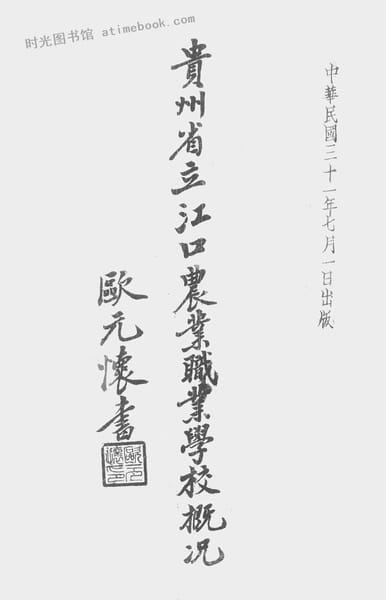 时光图书馆 atimebook.com
中華民國三十一年七月一日出版
貴州省立江口農業職業學校概况
歐元懷書